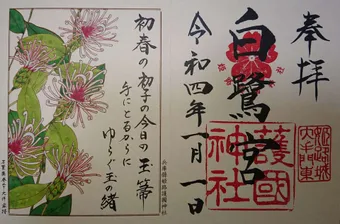 奉拝
白鷺宮
令和四年一月一日
姫路城
大手門東
護國
神社
初春の初子の今日の玉箒
手にとるからに
ゆらぐ玉の緒
兵庫縣姫路護國神社